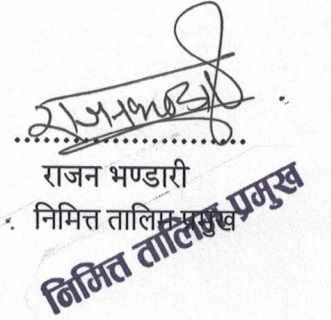 राजनभण्डारी
राजन भण्डारी
निमित्त तालिम प्रमुख
निमित्त तालिम प्रमुख